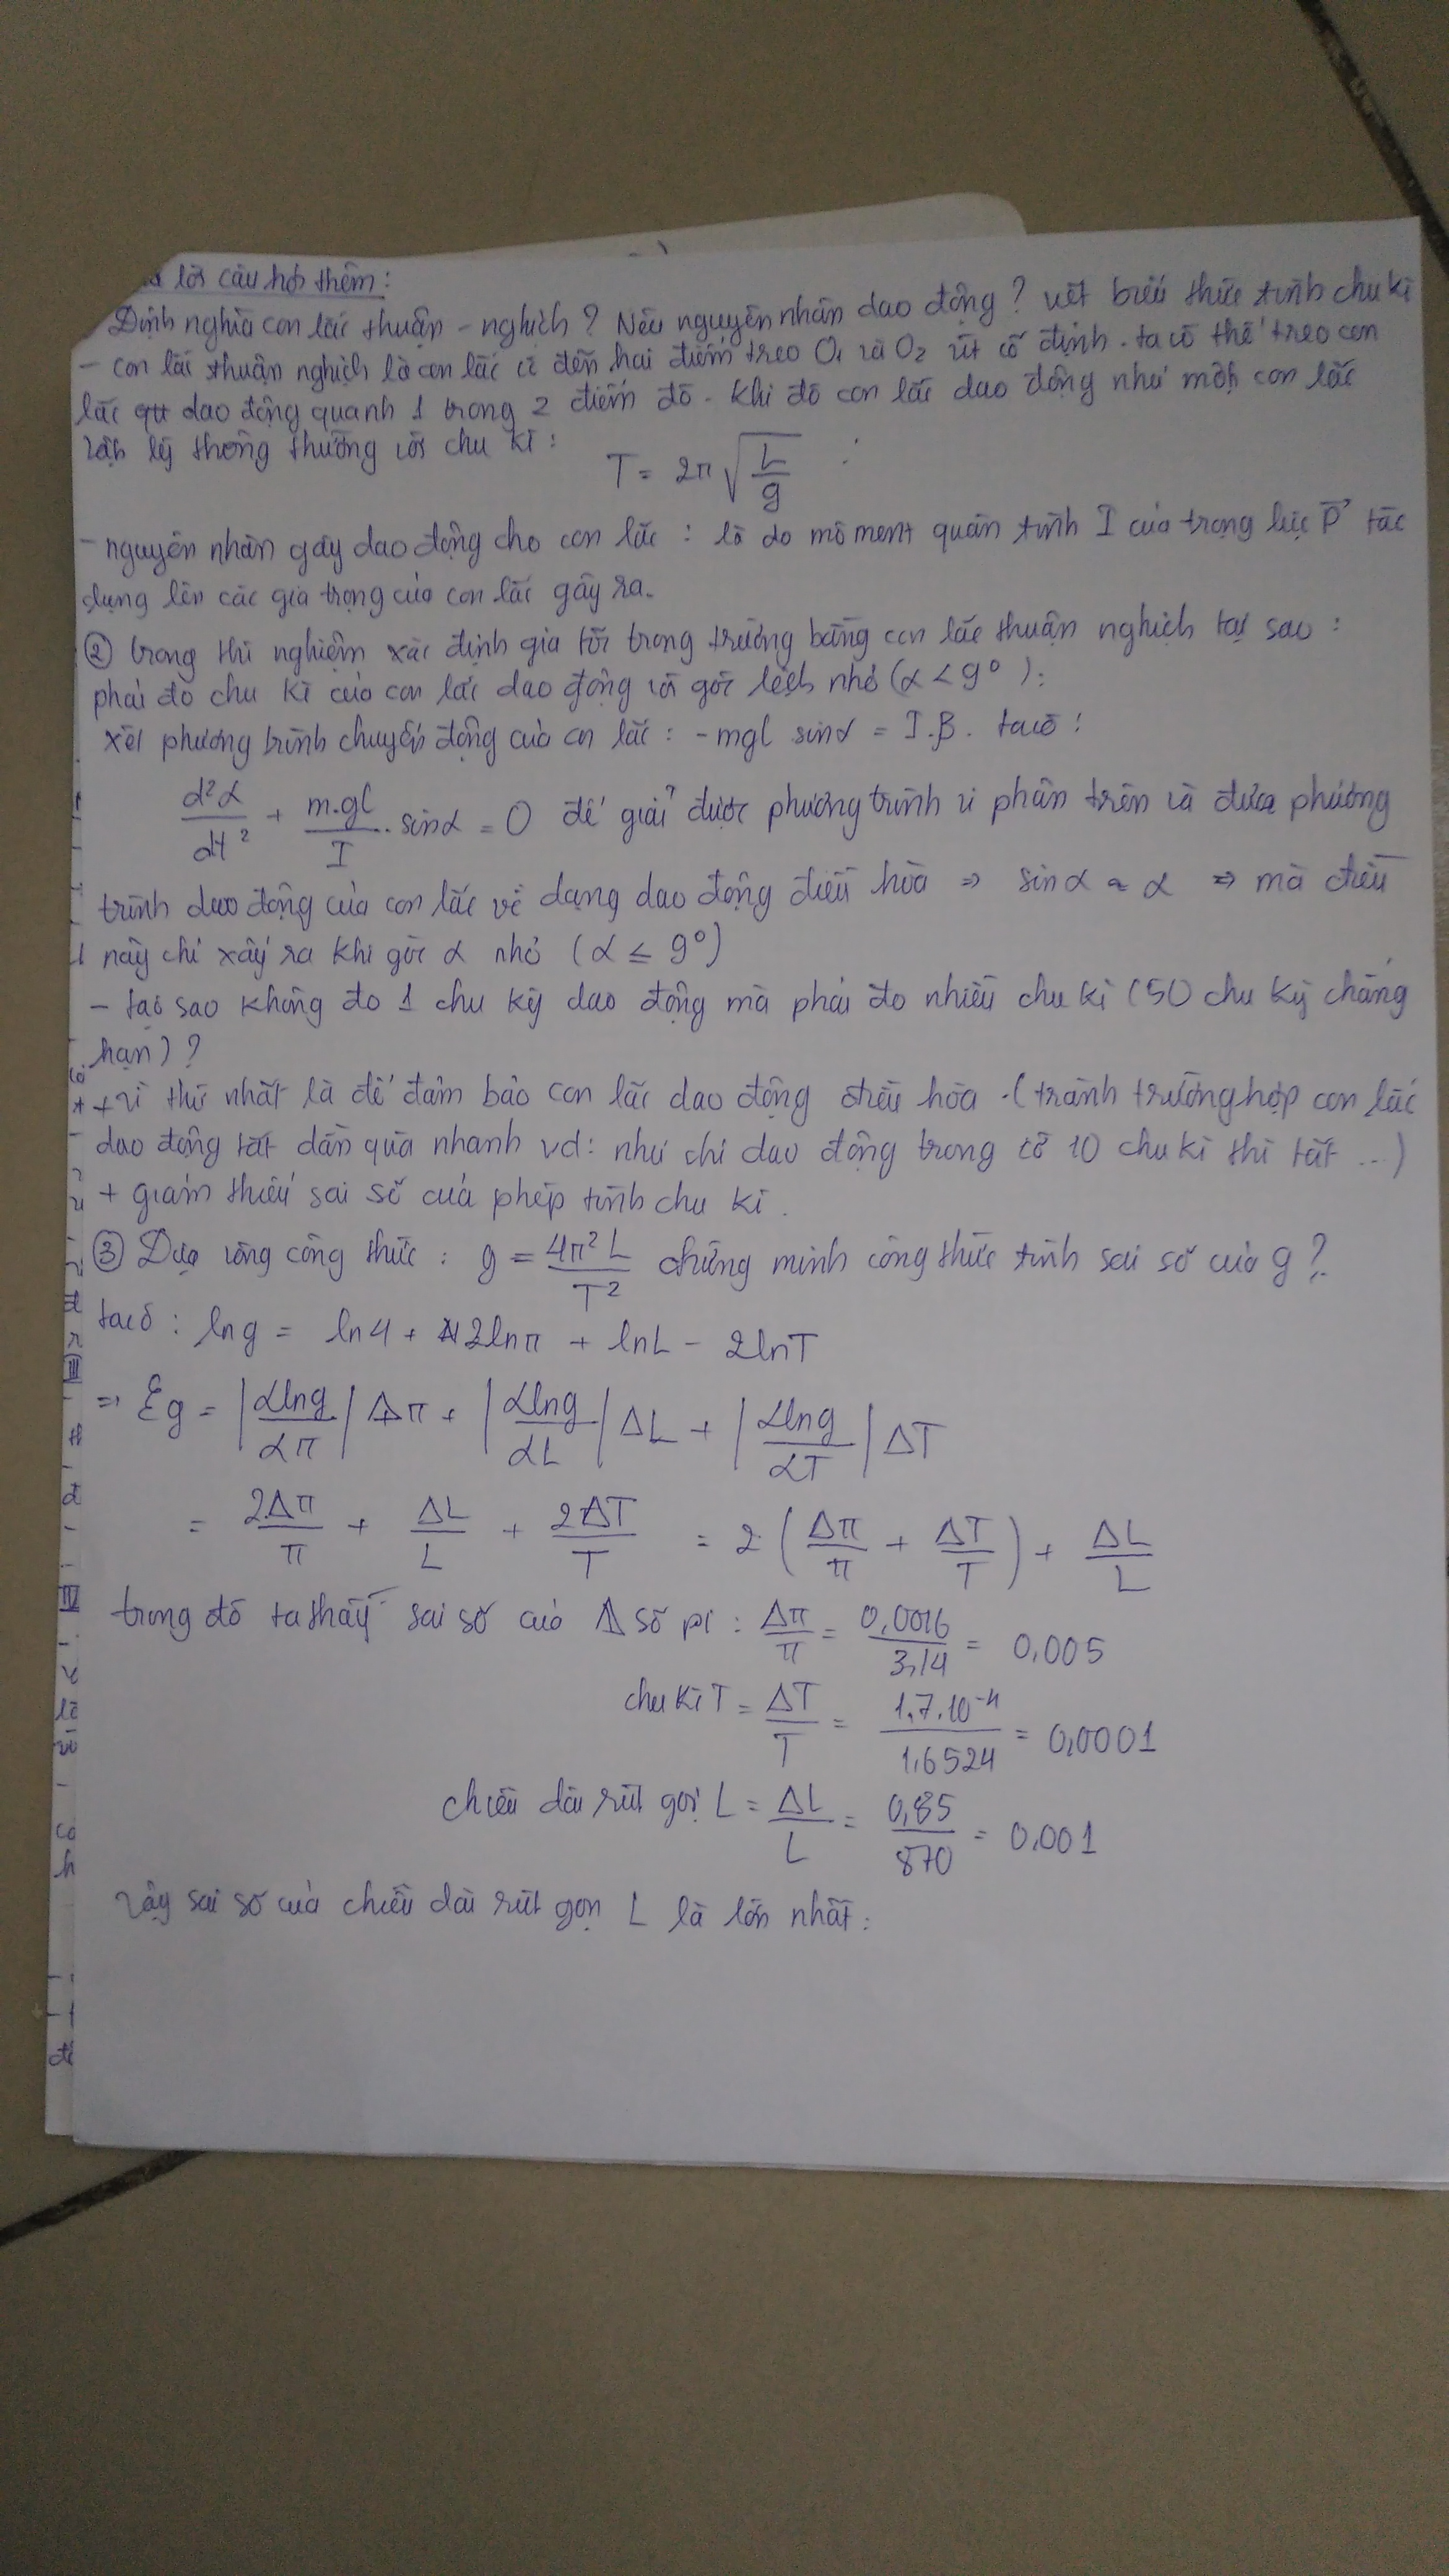 lời câu hỏi thêm:
Định nghĩa con lắc thuận - nghịch? Nêu nguyên nhân dao động? viết biểu thức tính chu kì
- con lắc thuận nghịch là con lắc có đến hai điểm treo O1 và O2 cố định. ta có thể treo con
lắc dao động quanh 1 trong 2 điểm đó. Khi đó con lắc dao động như một con lắc
vật lý thông thường với chu kì:
T = 2π √(L/g)
- nguyên nhân gây dao động cho con lắc: là do mô ment quán tính I của trọng lực P⃗ tác
dụng lên các gia trọng của con lắc gây ra.
② trong thí nghiệm xác định gia tốc trọng trường bằng con lắc thuận nghịch tại sao:
phải đo chu kì của con lắc dao động với góc lệch nhỏ (α < 9°):
xét phương trình chuyển động của con lắc: -mgl sinα = I.β. ta có:
d²α/dt² + m.gl/I . sinα = 0 để giải được phương trình vi phân trên và đưa phương
trình dao động của con lắc về dạng dao động điều hòa ⇒ sinα ≈ α ⇒ mà điều
này chỉ xảy ra khi góc α nhỏ (α ≤ 9°)
- tại sao không đo 1 chu kỳ dao động mà phải đo nhiều chu kì (50 chu kỳ chẳng
hạn)?
+ vì thứ nhất là để đảm bảo con lắc dao động điều hòa. (tránh trường hợp con lắc
dao động tắt dần quá nhanh vd: như chỉ dao động trong cỡ 10 chu kì thì tắt ...)
+ giảm thiểu sai số của phép tính chu kì.
③ Dựa công thức: g = 4π²L/T² chứng minh công thức tính sai số của g?
ta có: ln g = ln4 + 2lnπ + lnL - 2lnT
⇒ Ɛg = |αlng/απ| Δπ + |αlng/αL| ΔL + |αlng/αT| ΔT
= 2Δπ/π + ΔL/L + 2ΔT/T = 2 (Δπ/π + ΔT/T) + ΔL/L
trong đó ta thấy sai số của số pi: Δπ/π = 0,0016/3,14 = 0,005
chu kì T = ΔT/T = 1,7.10⁻⁴/1,6524 = 0,0001
chiều dài rút gọn L = ΔL/L = 0,85/870 = 0,001
Vậy sai số của chiều dài rút gọn L là lớn nhất.